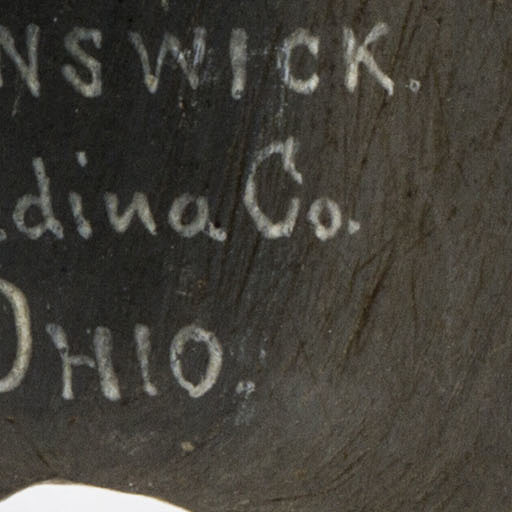 NSWICK.
dina Co.
OHIO.